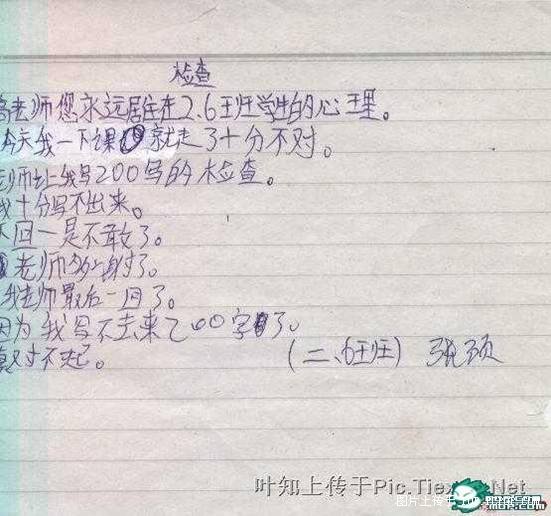 检查
老师您永远居住在2.6班学生的心里。
今天我一下课就走了十分不对。
老师让我写200写的检查。
我十分写不出来。
下回一是不敢了。
老师
我老师最后一回了。
因为我写不去来200字了。
对不起。
(二、6班)
叶知上传于Pic.Tiex Net
图片上传于
MOP.COM